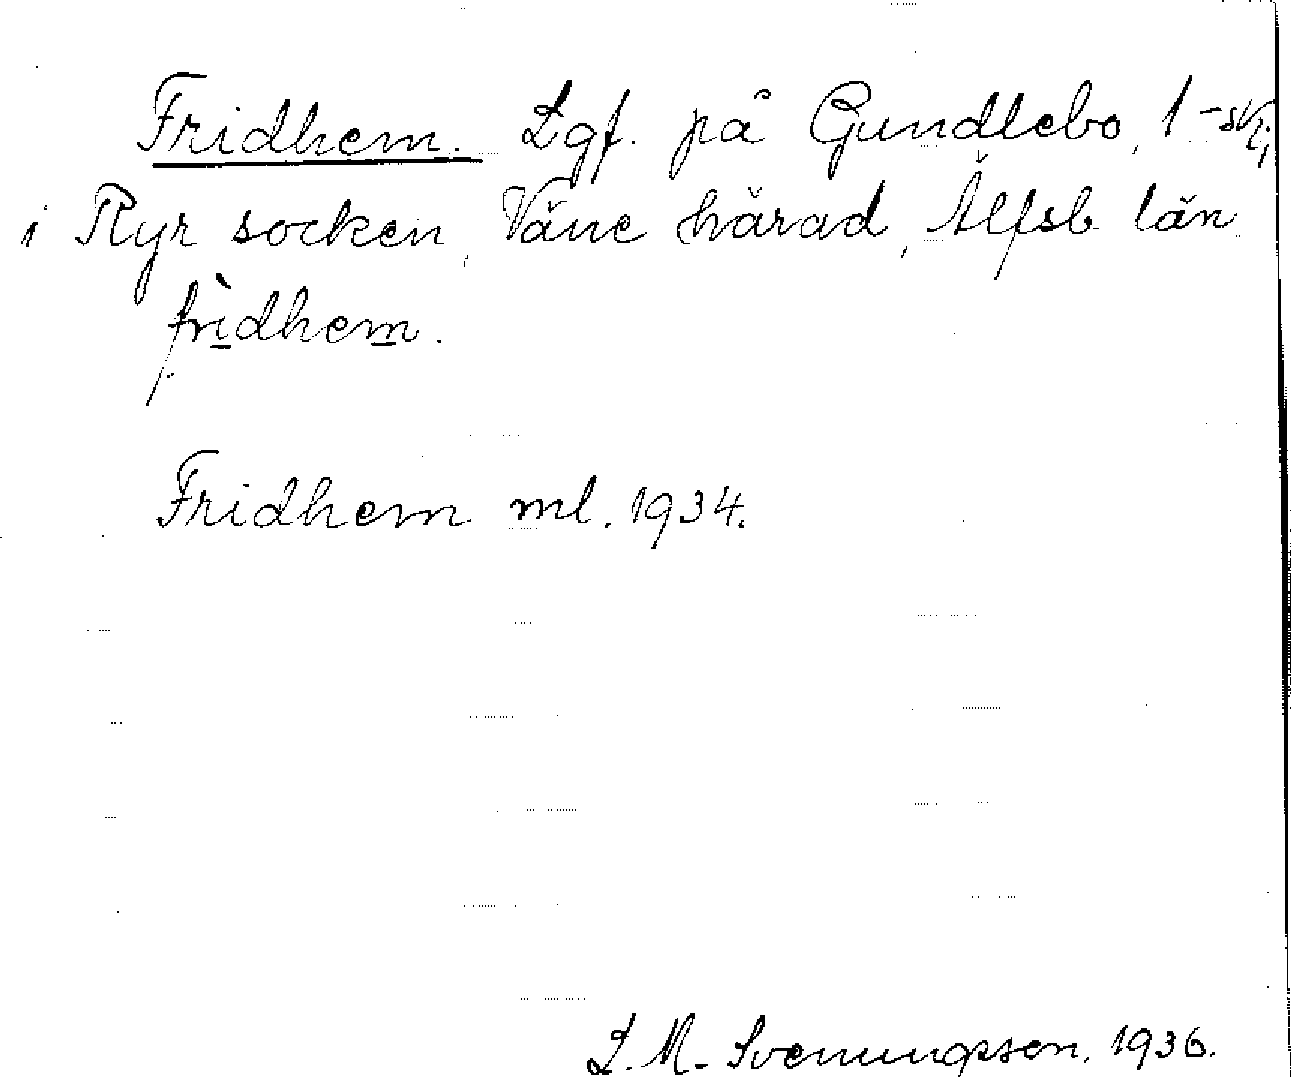 Fridhem. Lgf. på Gundlebo, 1-sk.,
i Ryr socken, Väne härad, Älfsb län
frìdhem.
Fridhem ml. 1934.
L. M. Svenungsson. 1936.